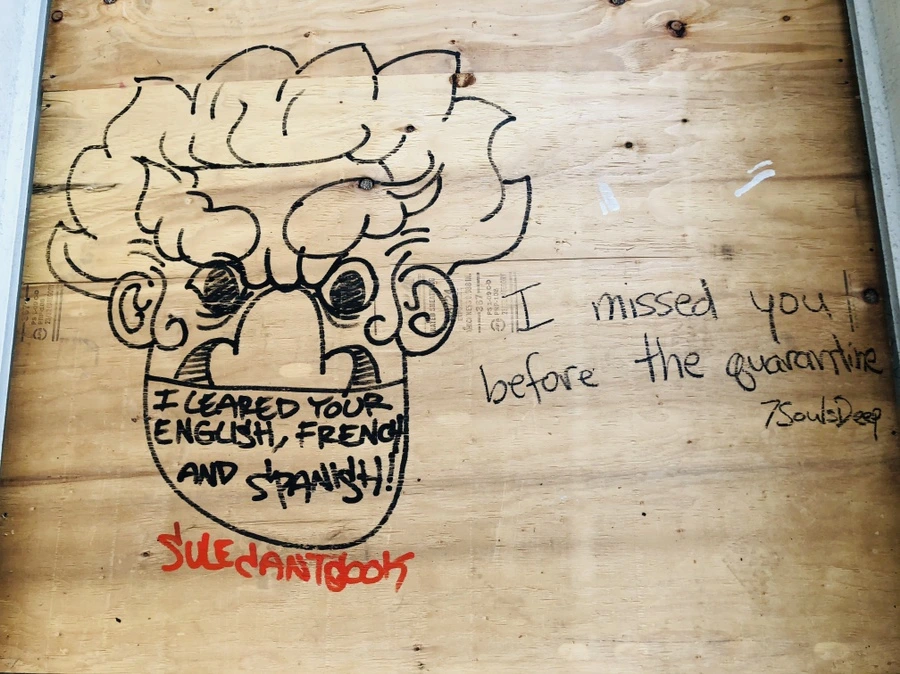 I LEARED YOUR
ENGLISH, FRENCH
AND SPANISH!!
SULECANTCOOK
I missed you!
before the quarantine
7SoulsDeep